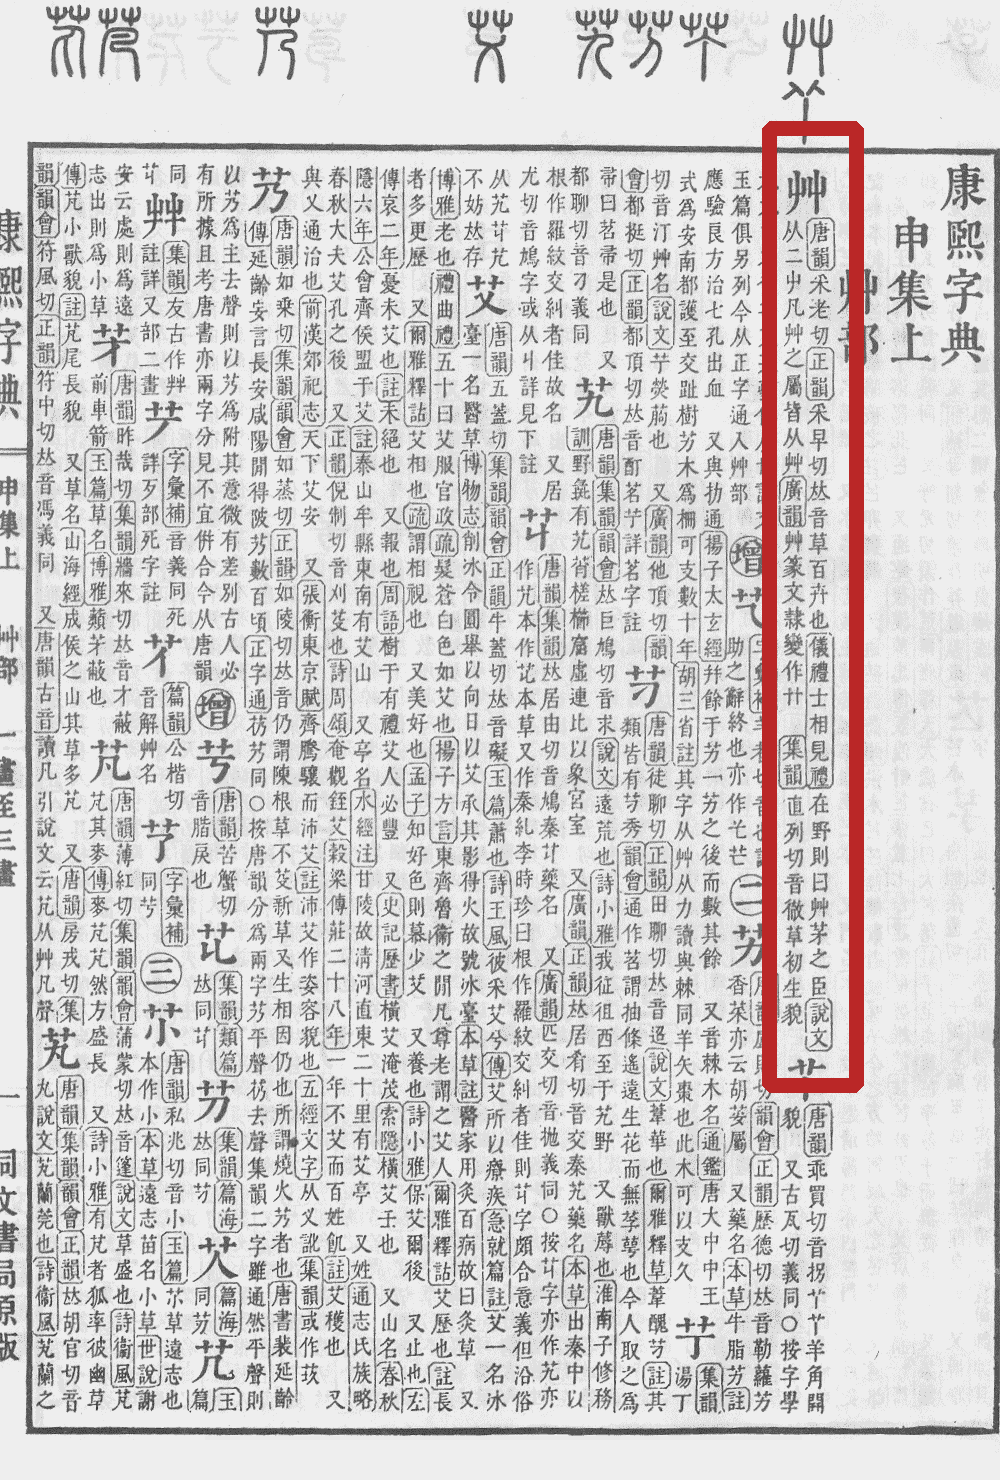 康熙字典
申集上
艸部
艸 唐韻采老切正韻采早切𠀤音草百卉也儀禮士相見禮在野則曰艸茅之臣說文
从二屮凡艸之屬皆从艸廣韻艸篆文隷變作卄 集韻直列切音徹草初生貌
唐韻乖買切音拐丫丫羊角開
貌 又古瓦切義同○按字學
玉篇俱另列今从正字通入艸部 增
二 艻
香菜亦云胡荽屬 又藥名本草牛脂艻註
韻會正韻歷德切𠀤音勒蘿艻
應驗良方治七孔出血 又與扐通揚子太玄經幷餘于艻一艻之後而數其餘 又音棘木名通鑑唐大中中王
式爲安南都護至交趾樹艻木爲柵可支數十年胡三省註其字从艸从力讀與棘同羊矢棗也此木可以支久
艼 集韻
湯丁
切音汀艸名說文艼熒䓇也 又廣韻他頂切韻
會都挺切正韻都頂切𠀤音酊茗艼詳茗字註
艿 唐韻
芀 唐韻徒聊切正韻田聊切𠀤音迢說文葦華也爾雅釋草葦醜芀註其
類皆有芀秀韻會通作苕謂抽條遙遠生花而無莩萼也今人取之爲
帚曰苕帚是也 又
都聊切音刁義同
艽 唐韻集韻韻會𠀤巨鳩切音求說文遠荒也詩小雅我征徂西至于艽野 又獸蓐也淮南子修務
訓野彘有艽莦槎櫛窟虛連比以象宮室 又廣韻正韻𠀤居肴切音交秦艽藥名本草出秦中以
根作羅紋交糾者佳故名 又居
尤切音鳩字或从丩詳見下註
艾 唐韻五蓋切集韻韻會正韻牛蓋切𠀤音礙玉篇蕭也詩王風彼采艾兮傳艾所以療疾急就篇註艾一名冰
臺一名醫草博物志削冰令圓舉以向日以艾承其影得火故號冰臺本草註醫家用灸百病故曰灸草 又
博雅老也禮曲禮五十曰艾服官政疏髮蒼白色如艾也揚子方言東齊魯衞之閒凡尊老謂之艾人爾雅釋詁艾歷也註長
者多更歷 又爾雅釋詁艾相也疏謂相視也 又美好也孟子知好色則慕少艾 又養也詩小雅保艾爾後 又止也左
傳哀二年憂未艾也註未絕也 又報也周語樹于有禮艾人必豐 又史記歷書橫艾淹茂索隱橫艾壬也 又山名春秋
隱六年公會齊侯盟于艾註泰山牟縣東南有艾山 又亭名水經注甘陵故淸河直東二十里有艾亭 又姓通志氏族略
春秋大夫艾孔之後 又正韻倪制切音刈芟也詩周頌奄觀銍艾穀梁傳莊二十八年一年不艾而百姓飢註艾穫也 又
與乂通治也前漢郊祀志天下艾安 又張衡東京賦齊騰驤而沛艾註沛艾作姿容貌也五經文字从乂訛集韻或作䒫
艿 唐韻如乘切集韻韻會如蒸切正韻如陵切𠀤音仍謂陳根草不芟新草又生相因仍也所謂燒火艿者也唐書裴延齡
傳延齡妄言長安咸陽閒得陂艿數百頃正字通芿艿同○按唐韻分爲兩字艿平聲芿去聲集韻二字雖通然平聲則
以艿爲主去聲則以艿爲附其意微有差別古人必
有所據且考唐書亦兩字分見不宜倂合今从唐韻
增 芌 唐韻苦蟹切
音腊戾也
芢 集韻類篇
𠀤同艿
芀 集韻篇海
𠀤同芀
艽 玉篇
同
芔 集韻友古作艸
註詳又部二畫
字彙補音義同死
詳歹部死字註
篇韻公楷切
音解艸名
字彙補
同艿
三 芣 唐韻私兆切音小玉篇芣草遠志也
本作小本草遠志苗名小草世說謝
安云處則爲遠
志出則爲小草
芧 唐韻昨哉切集韻牆來切𠀤音才蔽
前車箭玉篇草名博雅䕷茅蔽也
芃 唐韻薄紅切集韻韻會蒲蒙切𠀤音篷說文草盛也詩衞風芃
芃其麥傳麥芃芃然方盛長 又詩小雅有芃者狐率彼幽草
傳芃小獸貌註芃尾長貌 又草名山海經成侯之山其草多芃 又唐韻房戎切集
韻韻會符風切正韻符中切𠀤音馮義同 又唐韻古音讀凡引說文云芃从艸凡聲
芄 唐韻集韻韻會正韻𠀤胡官切音
丸說文芄蘭莞也詩衞風芄蘭之
康熙字典
申集上 艸部 一畫至三畫
一
同文書局原版